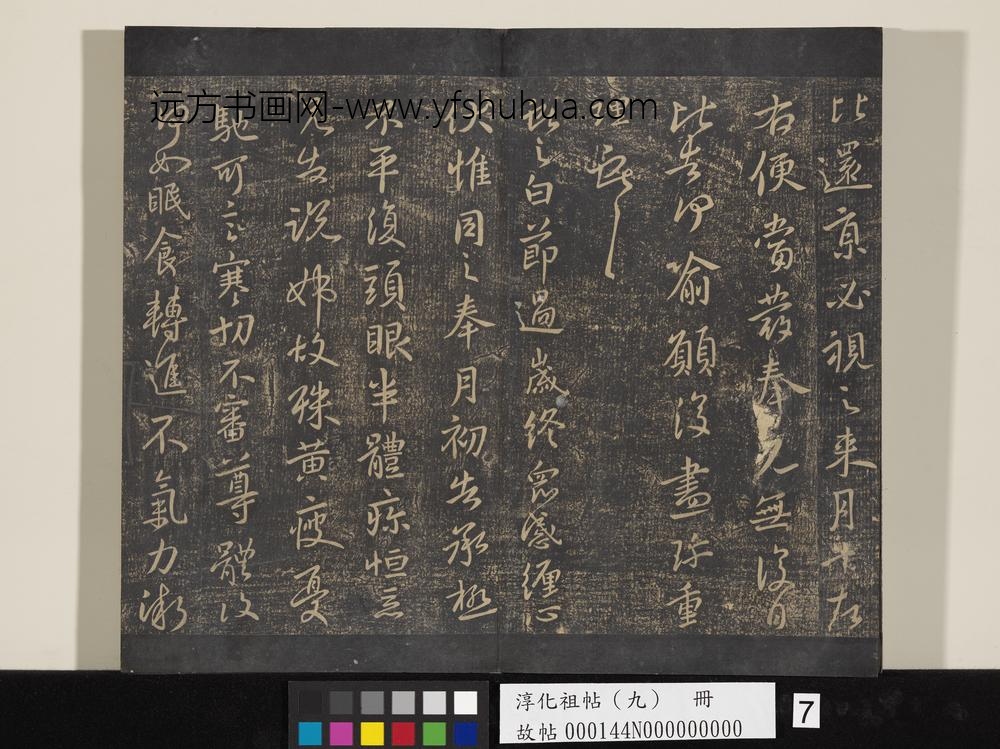 远方书画网-www.yfshuhua.com
比還京必視之來月十左
右便當發奉見無復日
比告何喻願復盡珍重
獻之白節過歲終眾感纏心
伏惟同之奉月初告承極
不平復頭眼半體疼恒惡
見告說姊故殊黃瘦憂
馳可言寒切不審尊體復
何如眠食轉進不氣力漸
淳化祖帖（九） 冊
故帖 000144N000000000
7